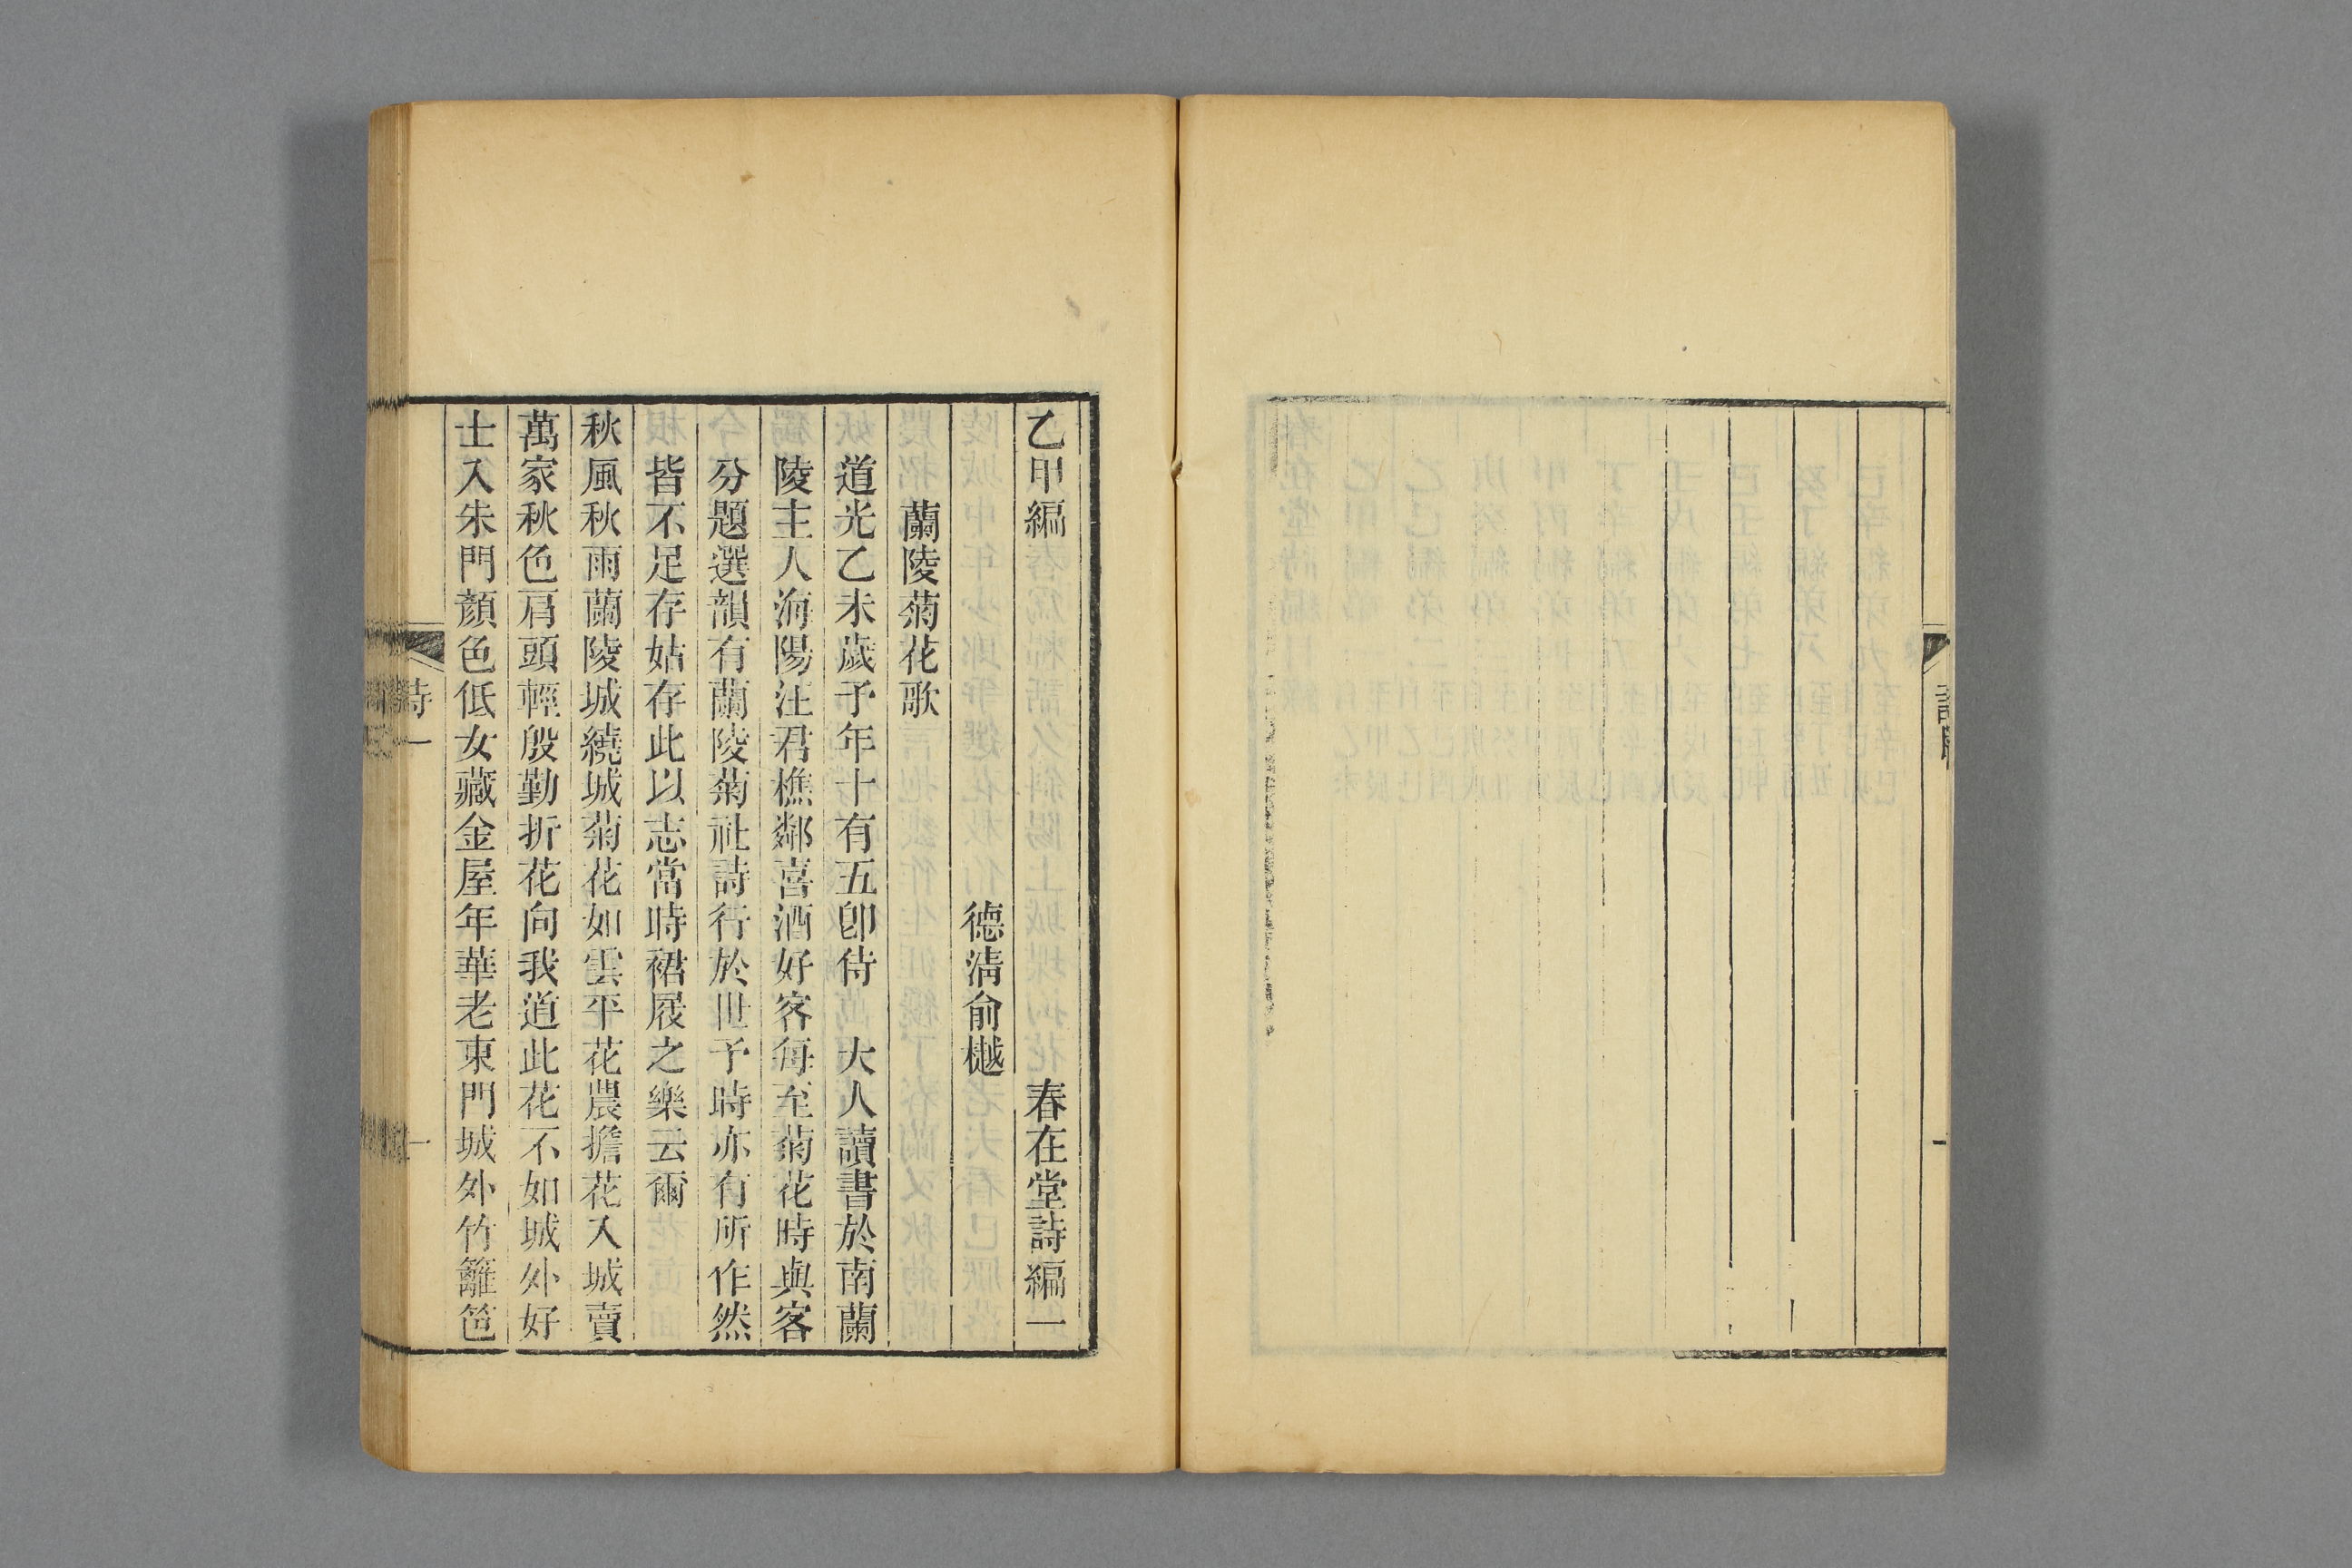 乙甲編 春在堂詩編一
德淸俞樾
蘭陵菊花歌
道光乙未歲予年十有五卽侍 大人讀書於南蘭
陵主人海陽汪君樵鄰喜酒好客每至菊花時與客
分題選韻有蘭陵菊社詩行於世予時亦有所作然
皆不足存姑存此以志當時裙屐之樂云爾
秋風秋雨蘭陵城繞城菊花如雲平花農擔花入城賣
萬家秋色肩頭輕殷勤折花向我道此花不如城外好
士入朱門顏色低女藏金屋年華老東門城外竹籬笆
詩一
一